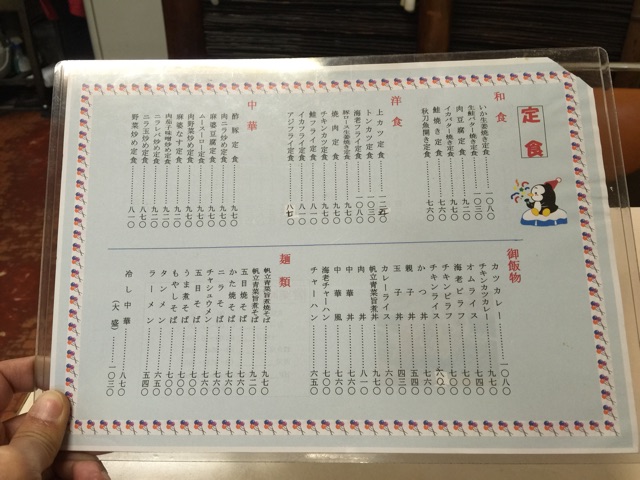 定食
和食
いか生姜焼き定食 一〇八〇
生鮭バター焼き定食 一〇三〇
肉豆腐定食 九二〇
イカバター焼き定食 九七〇
鮭焼き定食 七六〇
秋刀魚開き定食 七六〇
洋食
上カツ定食
トンカツ定食 一〇三〇
海老フライ定食 一〇八〇
豚ロース生姜焼き定食 九七〇
焼肉定食 九七〇
チキンカツ定食 九七〇
鮭フライ定食 八一〇
イカフライ定食 八一〇
アジフライ定食
中華
酢豚定食 九七〇
肉ニラめ定食 九七〇
麻婆豆腐定食 九七〇
肉野菜炒め定食 八七〇
ムースーロー定食 八七〇
麻婆なす定食 九二〇
肉茄子味噌炒め定食 九二〇
ニラレバ炒め定食 八七〇
ニラ玉炒め定食 八七〇
野菜炒め定食 八一〇
御飯物
カツカレー 一〇八〇
チキンカツカレー 九七〇
オムライス 七四〇
海老ピラフ 七〇〇
チキンピラフ 七〇〇
チキンライス
かつ丼 七六〇
親子丼 五四〇
玉子丼 四三〇
カレーライス 五四〇
帆立青菜旨煮丼 九七〇
肉丼 八一〇
中華丼 七六〇
中華風 七〇〇
海老チャーハン 七六〇
チャーハン 六五〇
麺類
帆立青菜旨煮焼そば 九七〇
帆立青菜旨煮そば 九二〇
五目焼そば 七六〇
かた焼そば 七六〇
ニラそば 七六〇
チャシュウメン 七六〇
五目そば 七六〇
うま煮そば 七〇〇
もやしそば 七〇〇
タンメン 七〇〇
ラーメン 五四〇
冷し中華 八七〇
(大盛) 一〇三〇